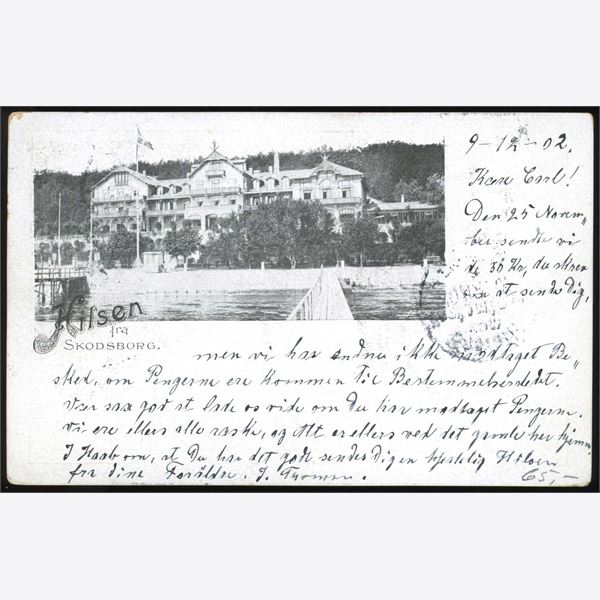 9-12-02.
Kære Carl!
Den 25 Novem„
ber sendte vi
de 30 Kr, du skrev
om at sende Dig,
Hilsen
fra
SKODSBORG.
men vi har endnu ikke modtaget Be„
sked, om Pengene ere kommen til Bestemmelsesstedet.
Vær saa god at lade os vide om Du har modtaget Pengene.
Vi ere ellers alle raske, og Alt er ellers ved det gamle her hjemme.
I Haab om, at Du har det godt sendes Dig en hjertelig Hilsen
fra dine Forældre. J.
65,-